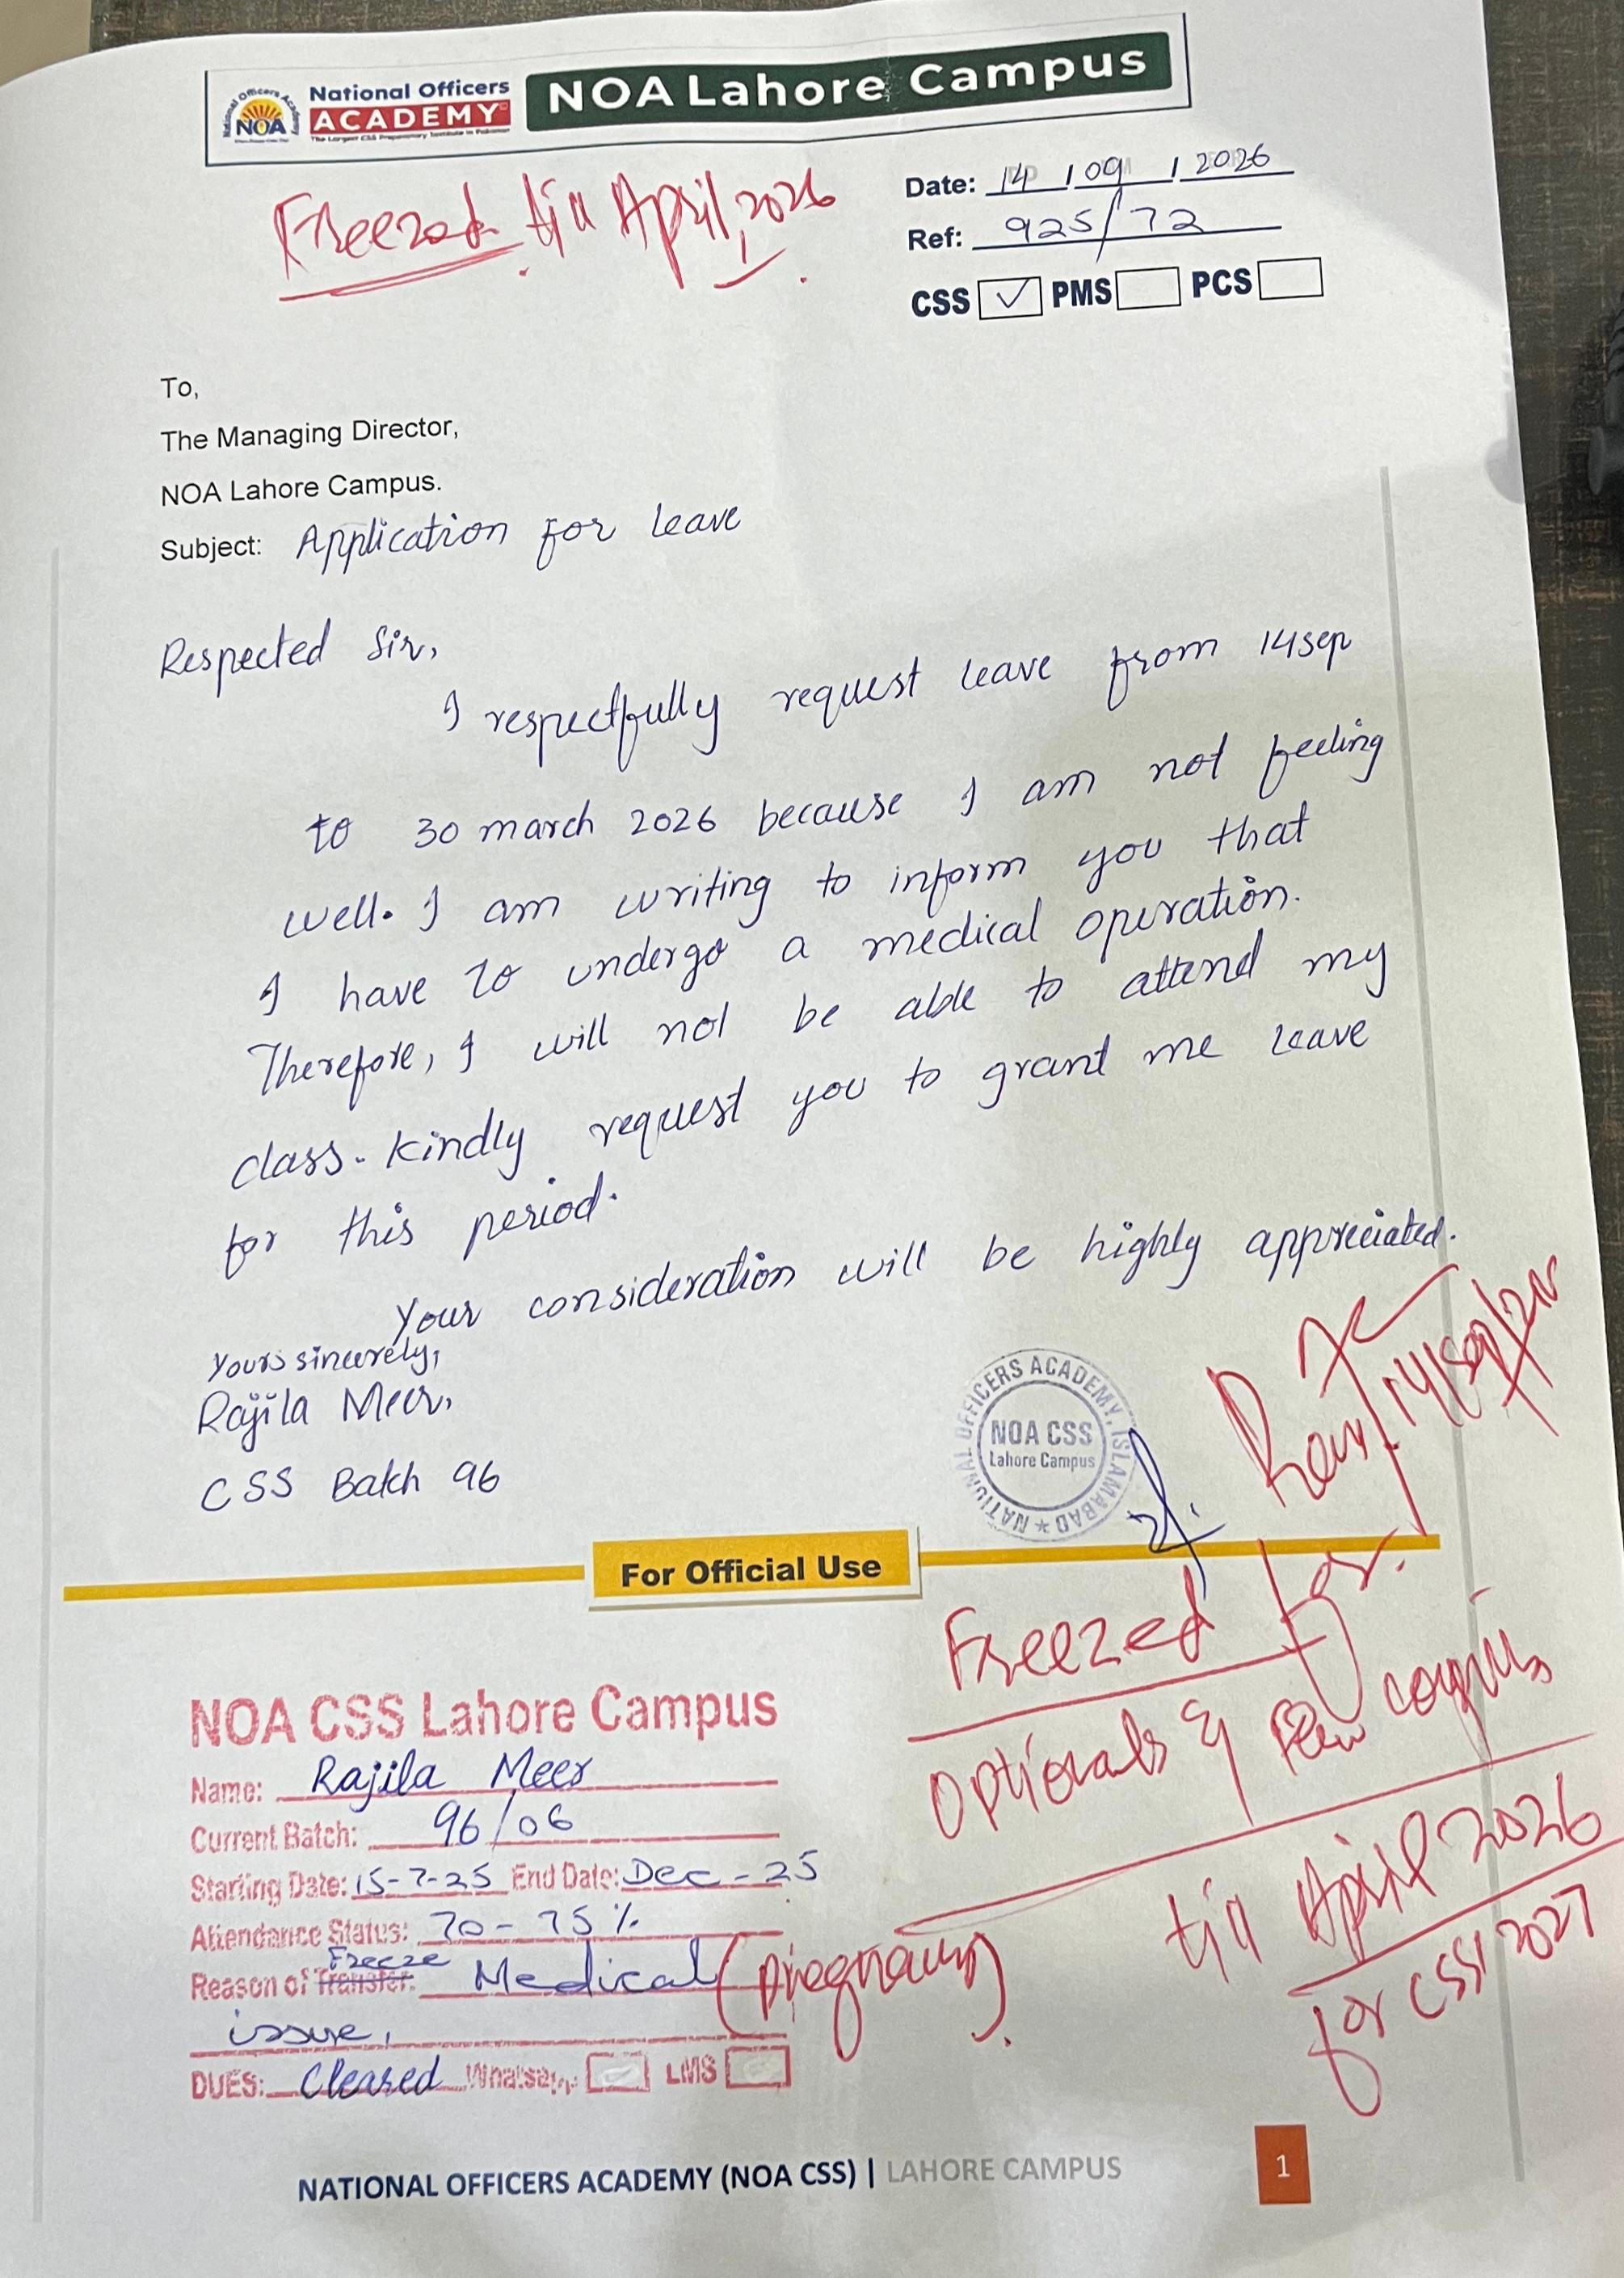 National Officers
ACADEMY
The Largest CSS Preparatory Institute in Pakistan
National Officers Academy
NOA
NOA Lahore Campus
Freezed till April, 2026
Date: 14 / 09 / 2026
Ref: 925/72
CSS ✓ PMS PCS
To,
The Managing Director,
NOA Lahore Campus.
Subject: Application for leave
Respected Sir,
I respectfully request leave from 14sep
to 30 march 2026 because I am not feeling
well. I am writing to inform you that
I have to undergo a medical operation.
Therefore, I will not be able to attend my
class. Kindly request you to grant me leave
for this period.
Your consideration will be highly appreciated.
Yours sincerely,
Rajila Meer,
CSS Batch 96
NATIONAL OFFICERS ACADEMY, ISLAMABAD
NOA CSS
Lahore Campus
14/Sep/
For Official Use
Freezed for.
Optionals & Few
till April 2026
for CSS 2027
NOA CSS Lahore Campus
Name: Rajila Meer
Current Batch: 96/06
Starting Date: 15-7-25 End Date: Dec-25
Attendance Status: 70-75%
Reason of Transfer: Freeze Medical (Pregnancy).
issue,
DUES: Cleared Whatsapp LMS
NATIONAL OFFICERS ACADEMY (NOA CSS) | LAHORE CAMPUS
1